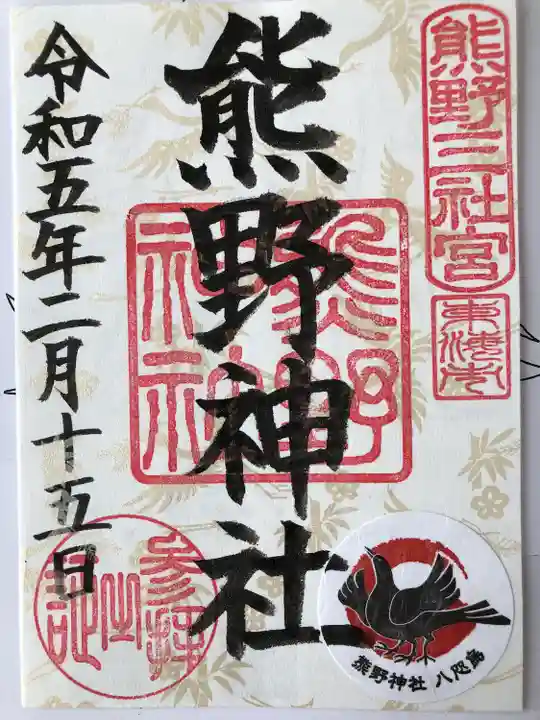 熊野三社宮
東海市
熊野神社
熊野神社
令和五年二月十五日
参拝之証
熊野神社 八咫烏